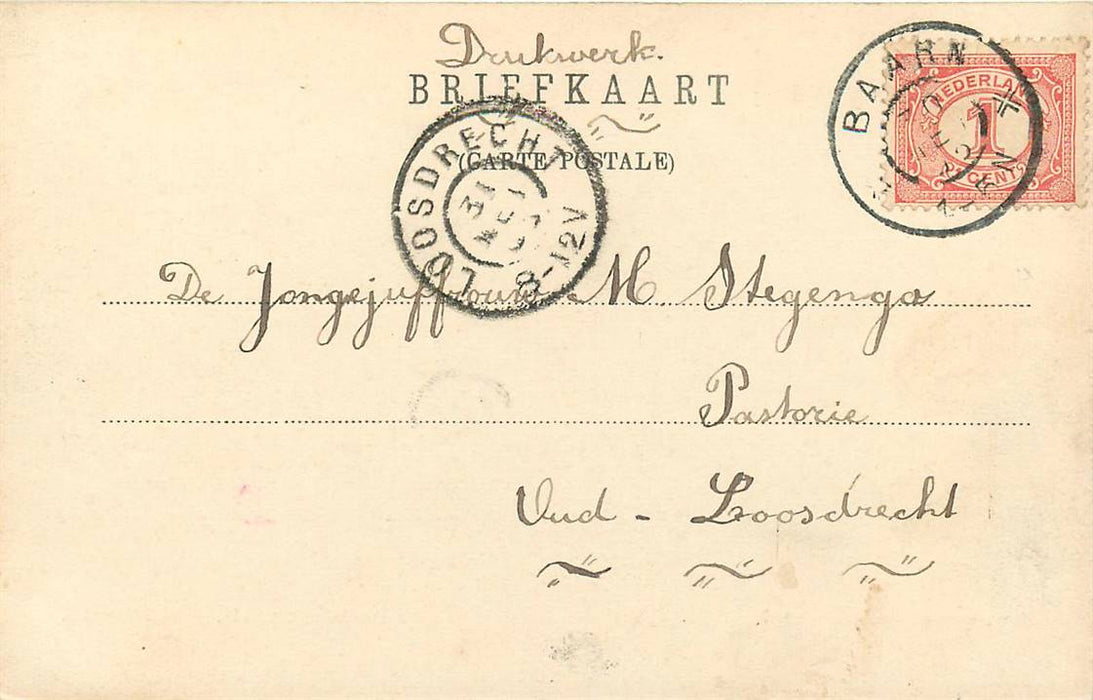 Drukwerk.
BRIEFKAART
(CARTE POSTALE)
BAARN
NEDERLAND
1
CENT
LOOSDRECHT
31
8-12V
De Jongejuffrouw M. Stegenga
Pastorie
Oud - Loosdrecht